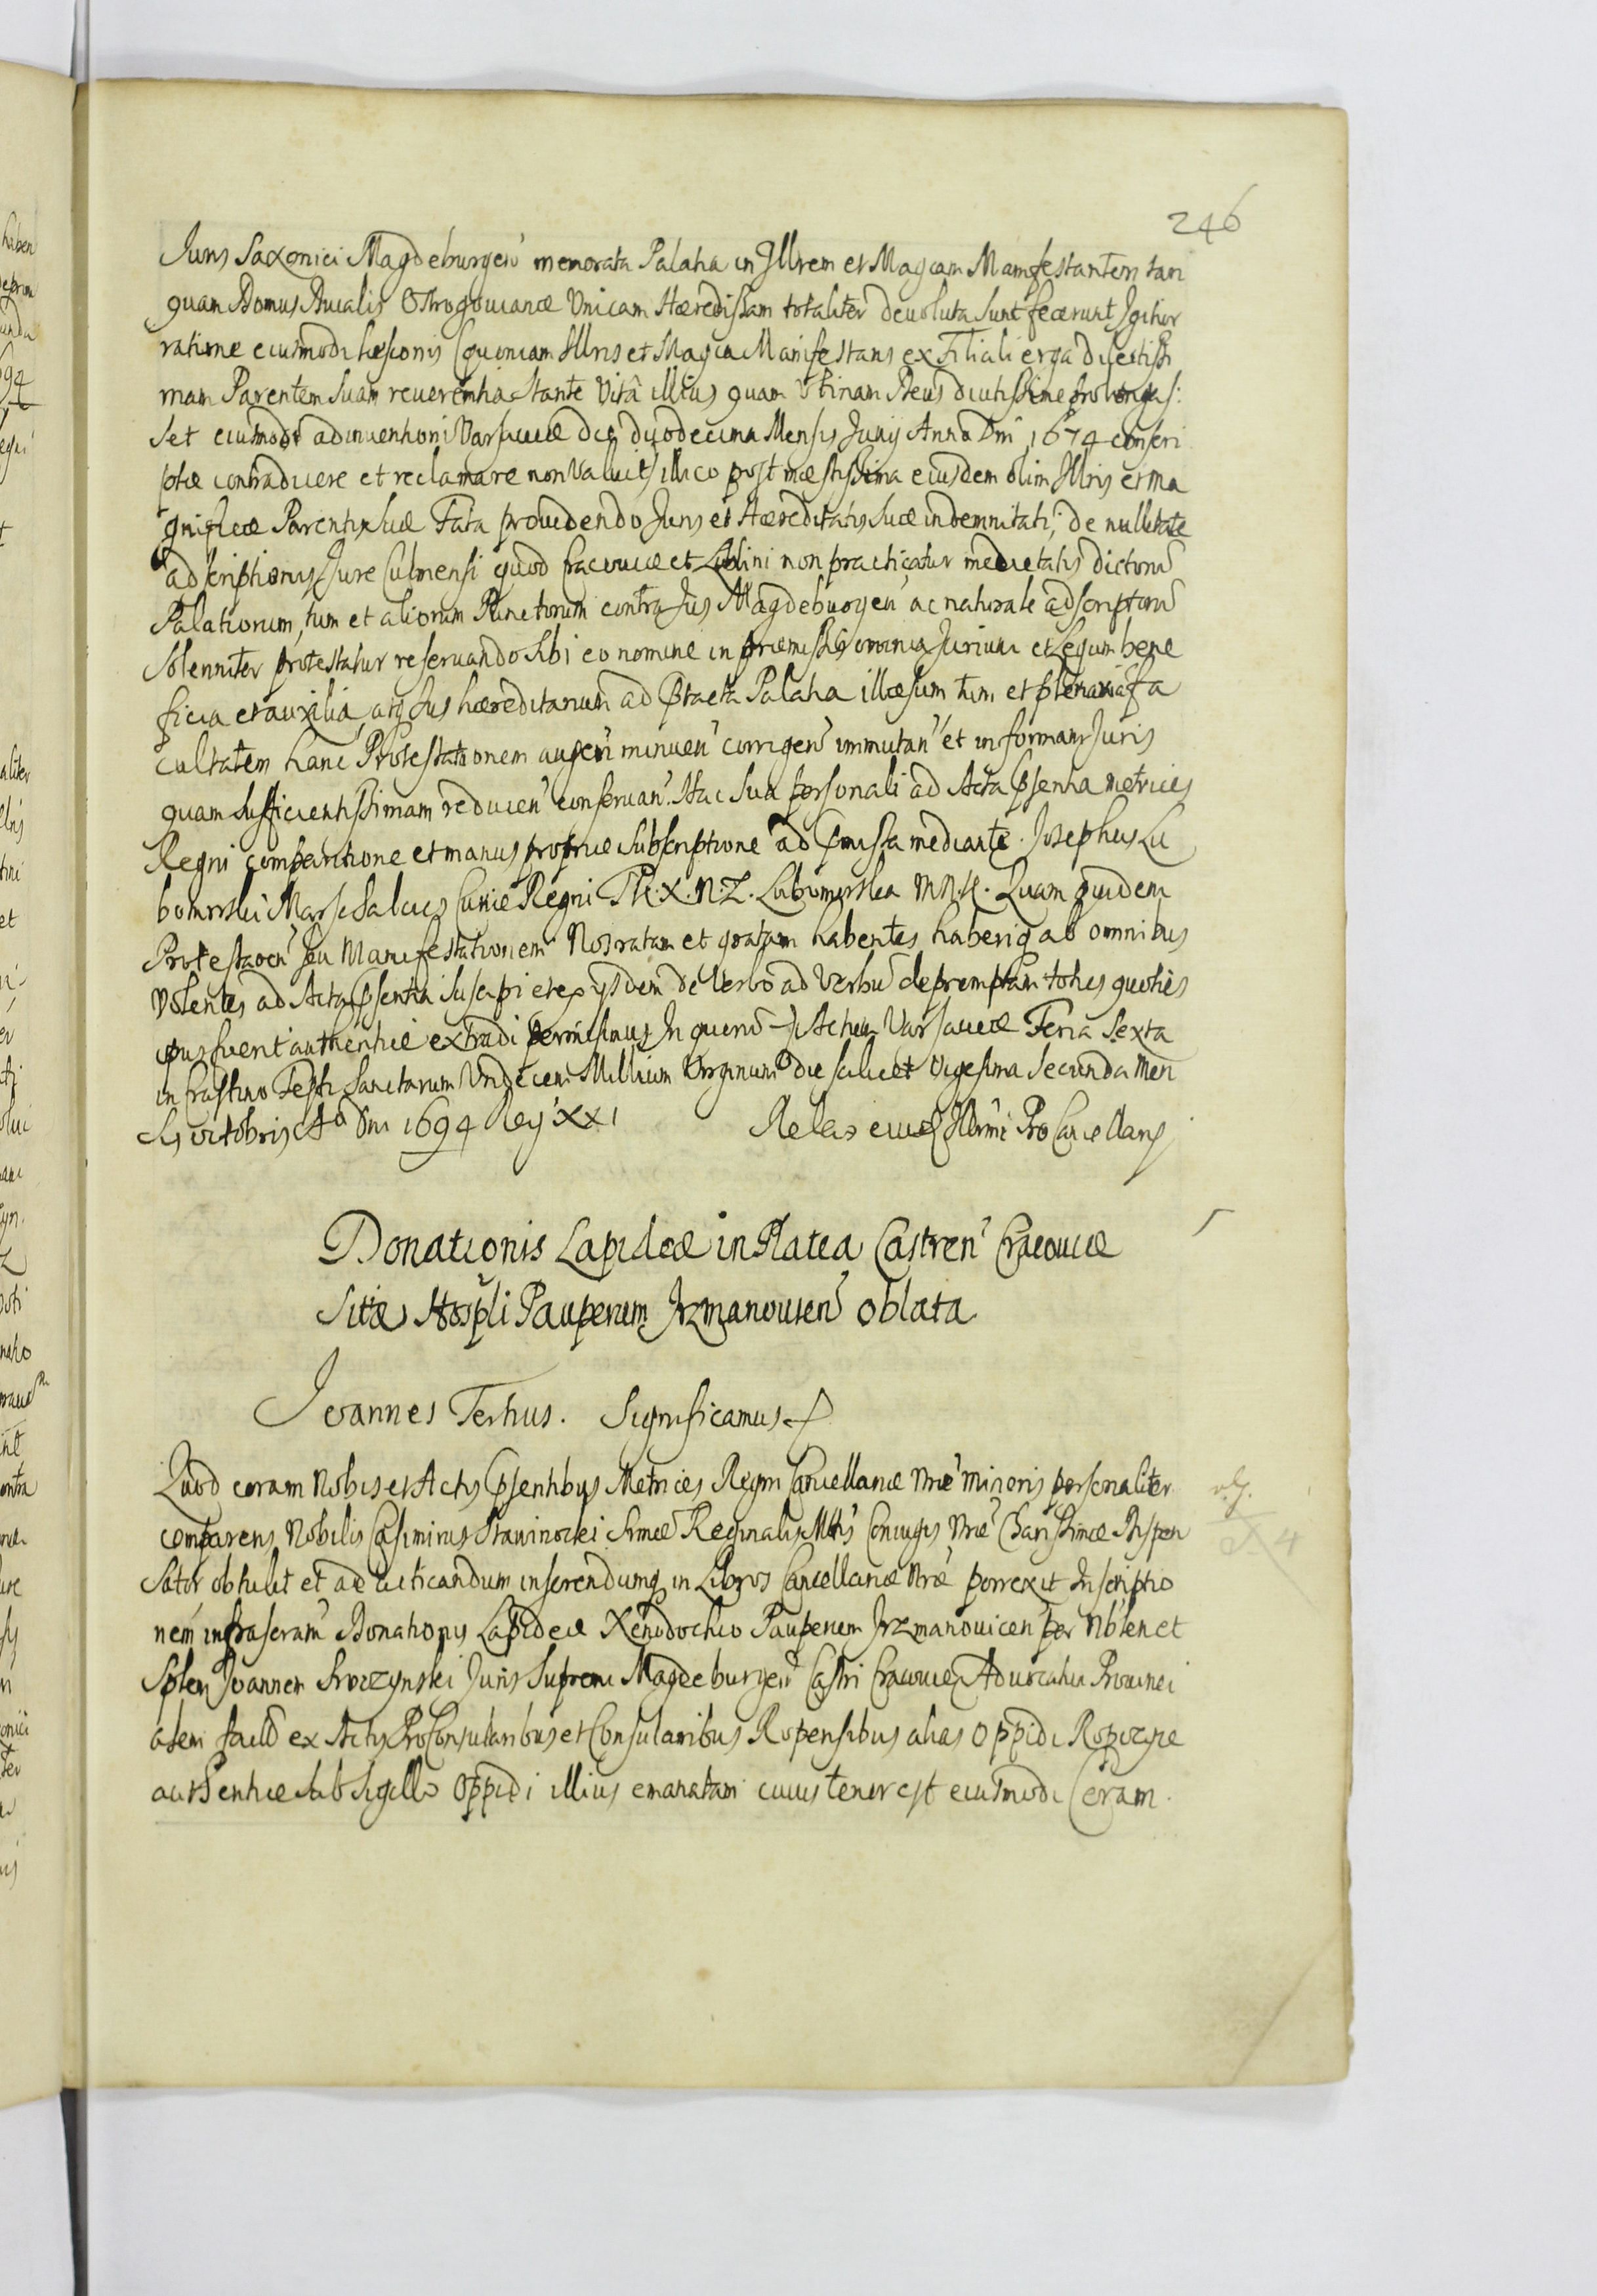 246
Juris Saxonici Magdeburgen̄ memorata Palatia in Jllrem et Magcam Manifestantem tan
quam Domus Ducalis Ostrogovianæ Unicam Hæredissam totaliter devoluta sunt fecerunt Jgitur
ratione eiusmodi læsionis (quoniam Jllris et Magca Manifestans ex Filiali erga dilectissi
mam Parentem Suam reverentia Stante Vitâ illius quam Utinam Deus diutissime prolongas:
set eiusmodi adinventioni Varsaviæ die duodecima Mensis Junÿ Anno Dni 1674 conscri
ptæ contradicere et reclamare non Valuit) illico post mæstissima eiusdem olim Jllris et Ma
gnificæ Parentis Suæ Fata providendo Juris et Hæreditatis Suæ indemnitati, de nullitate
adscriptionis Jure Culmensi quod Cracoviæ et Lublini non practicatur medietatis dictorū
Palatiorum, tum et aliorum Punctorum contra Jus Magdeburgen̄ ac naturale adscriptorū
Solenniter protestatur reservando Sibi eo nomine in præmissis omnia Jurium et Legum bene
ficia et auxilia, atq Jus hæreditarium ad Ptacta Palatia illæsum tum et plenariā fa
cultatem hanc Protestationem augen̄ minuen̄ corrigen̄ immutan̄ et in formam Juris
quam Sufficientissimam reducen̄ conservan̄. Hac Sua personali ad Acta Psentia Metrices
Regni comparitione et manus propriæ Subscriptione ad Pmissa mediante. Josephus Lu
bomirski Marschalcus Curiæ Regni Th. X. N. Z. Lubomirska M N K. Quam quidem
Protestaoem Seu Manifestationem Nos ratam et gratam habentes haberiq ab omnibus
Volentes ad Acta Psentia Suscipi et ex ÿsdem de Verbo ad Verbū depromptam toties quoties
opus fuerit authenticè extradi permisimus Jn quorū Actum Varsaviæ Feria Sexta
in Crastino Festi Sanctarum Undecem Millium Virginum die scilicet Vigesima Secunda Men
sis octobris Aō Dni 1694 Reg XXI Relao eiusd Jllrmi ProCancellarÿ
Donationis Lapideæ in Platea Castren̄ Cracoviæ
Sitæ Hospli Pauperum Jrzmanovicen̄ oblata
Joannes Tertius. Significamus
Quod coram Nobis et Actis Psentibus Metrices Regni Cancellariæ Nræ Minoris personaliter
comparens Nobilis Casimirus Stawinoski Srmæ Reginalis Mttis Coniugis Nræ Charissimæ Dispen
sator obtulit et ad acticandum inserendumq in Libros Cancellariæ Nræ porrexit Jnscriptio
nem infrascram Donationis Lapideæ Xenodochio Pauperum Jrzmanovicen per Nblem et
Splem Joannem Juris Supremi Magdeburgen̄ Castri Cracovien Advocatum Provinci
alem fact̄ ex Actis ProConsularibus et Consularibus Ropensibus alias Oppidi Ropczyce
authenticè Sub Sigillo Oppidi illius emanatam cuius tenor est eiusmodi Coram.